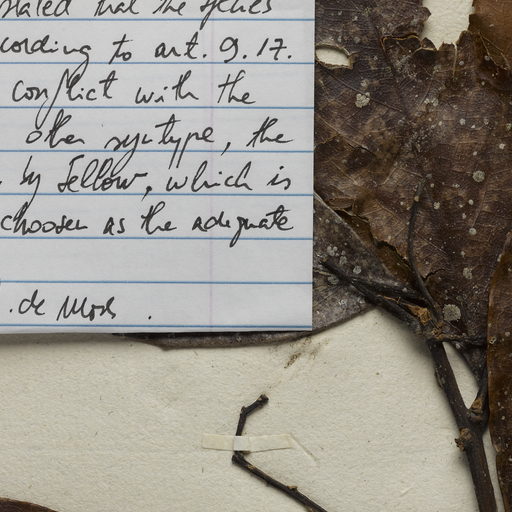 stated that the species
cording to art. 9.17.
conflict with the
other syntype, the
by Fellow, which is
choosen as the adequate
. de Mors .